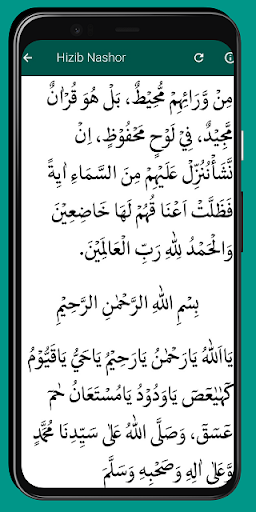 Hizib Nashor
مِنْ وَّرَائِهِمْ مُّحِيْطٌ، بَلْ هُوَ قُرْاٰنٌ
مَّجِيْدٌ، فِيْ لَوْحٍ مَحْفُوْظٍ، اِنْ
نَّشَأْنُنَزِّلْ عَلَيْهِمْ مِنَ السَّمَاءِ اٰيَةً
فَظَلَّتْ اَعْنَا قُهُمْ لَهَا خَاضِعِيْنَ
وَالْحَمْدُ لِلّٰهِ رَبِّ الْعَالَمِيْنَ.
بِسْمِ اللهِ الرَّحْمٰنِ الرَّحِيْمِ
يَااَللهُ يَارَحْمٰنُ يَارَحِيْمُ يَاحَيُّ يَاقَيُّوْمُ
كٓهٰيٰعٓصٓ يَاوَدُوْدُ يَامُسْتَعَانُ حٰمٓ
عٓسٓقٓ، وَصَلَّى اللهُ عَلَى سَيِّدِنَا مُحَمَّدٍ
وَّعَلَى اٰلِهِ وَصَحْبِهِ وَسَلَّمَ